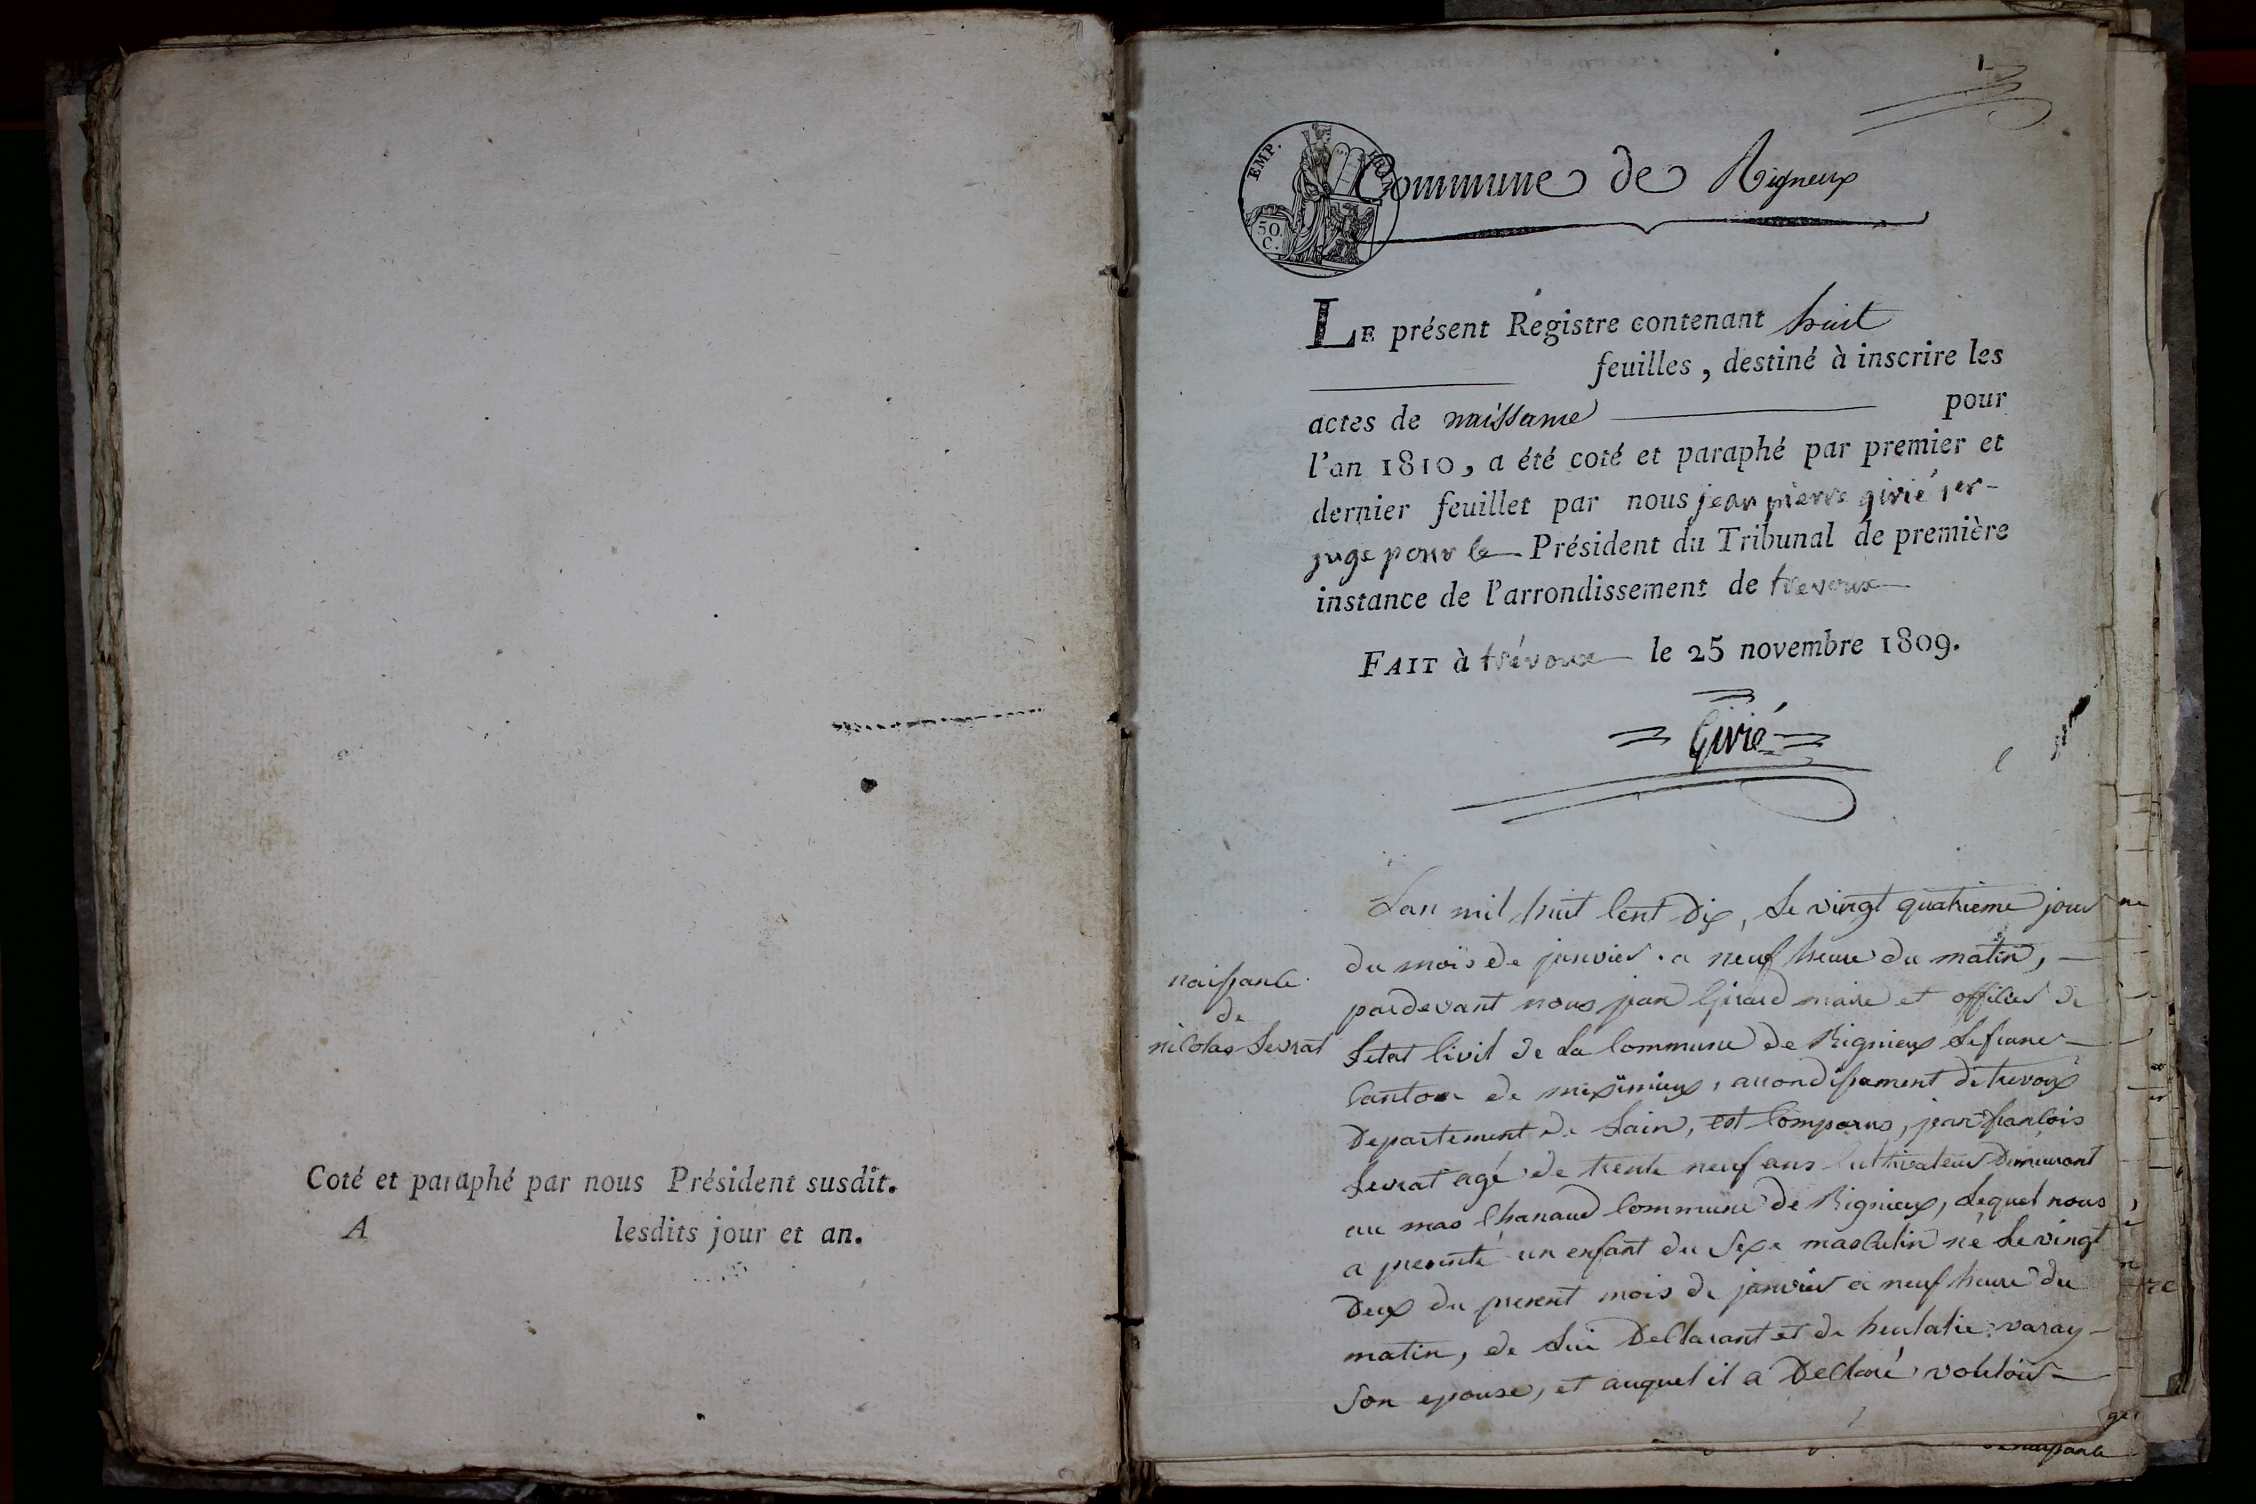 Coté et paraphé par nous Président susdit.
A lesdits jour et an.
1
EMP.
50.
C.
Commune de Rigneux
LE présent Registre contenant huit
feuilles, destiné à inscrire les
actes de naissance pour
l'an 1810, a été coté et paraphé par premier et
dernier feuillet par nous jean pierre givié 1er
juge pour le Président du Tribunal de première
instance de l'arrondissement de trevoux
FAIT à trévoux le 25 novembre 1809.
Givié
naissance
de
nicolas Levrat
Lan mil huit Cent Dix, Le vingt quatrieme jour
du mois de janvier a neuf heure du matin,
pardevant nous jean Girard maire et officier de
Letat Civil de La Commune de Rignieux Lefranc
Canton de meximieux, arrondissement de trevoux
Departement de Lain, est Comparus, jean françois
Levrat agé de trente neuf ans Cultivateur Demeurant
au mas Chanaud Commune de Rignieux, Lequel nous
a presenté un enfant du Sexe masculin né Le vingt
Deux du present mois de janvier a neuf heure du
matin, de Lui Declarant et de heulalie varay
Son epouse, et auquel il a Declaré vouloir